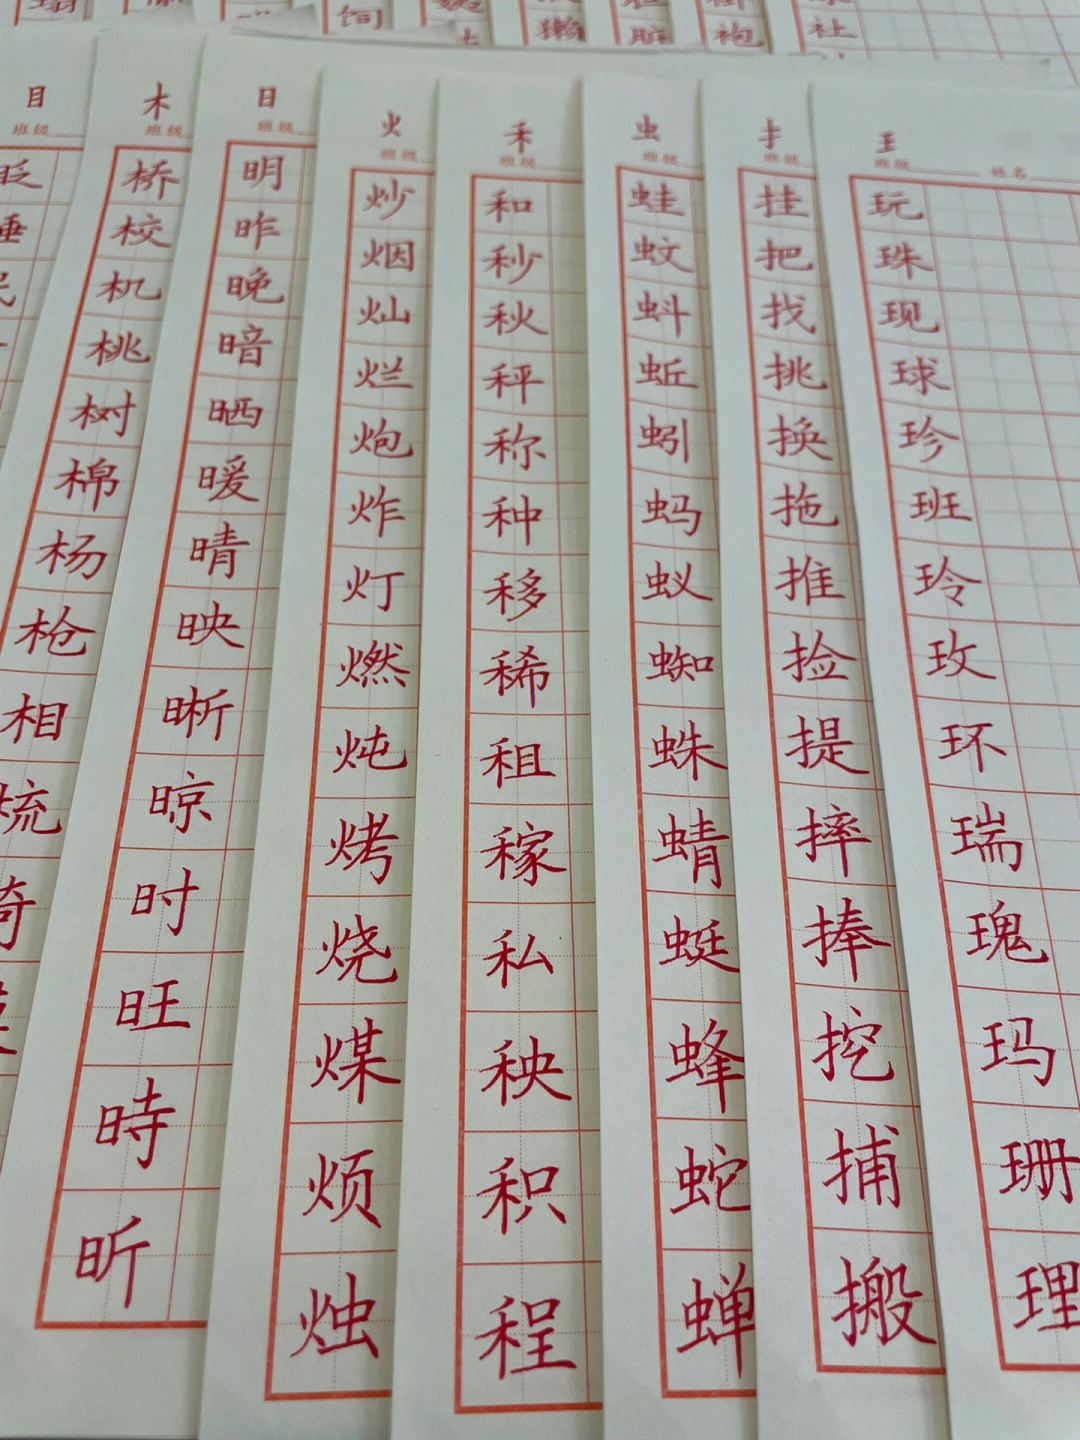 饲
獭
脏
袍
社
目
班级
眨
睡
眠
木
班级
桥
校
机
桃
树
棉
杨
枪
相
梳
椅
日
班级
明
昨
晚
暗
晒
暖
晴
映
晰
晾
时
旺
時
昕
火
班级
炒
烟
灿
烂
炮
炸
灯
燃
炖
烤
烧
煤
烦
烛
禾
班级
和
秒
秋
秤
称
种
移
稀
租
稼
私
秧
积
程
虫
班级
蛙
蚊
蚪
蚯
蚓
蚂
蚁
蜘
蛛
蜻
蜓
蜂
蛇
蝉
扌
班级
挂
把
找
挑
换
拖
推
捡
提
摔
捧
挖
捕
搬
王
班级 姓名
玩
珠
现
球
珍
班
玲
玫
环
瑞
瑰
玛
珊
理